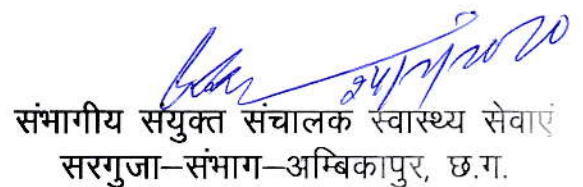 संभागीय संयुक्त संचालक स्वास्थ्य सेवाएं
सरगुजा–संभाग–अम्बिकापुर, छ.ग.